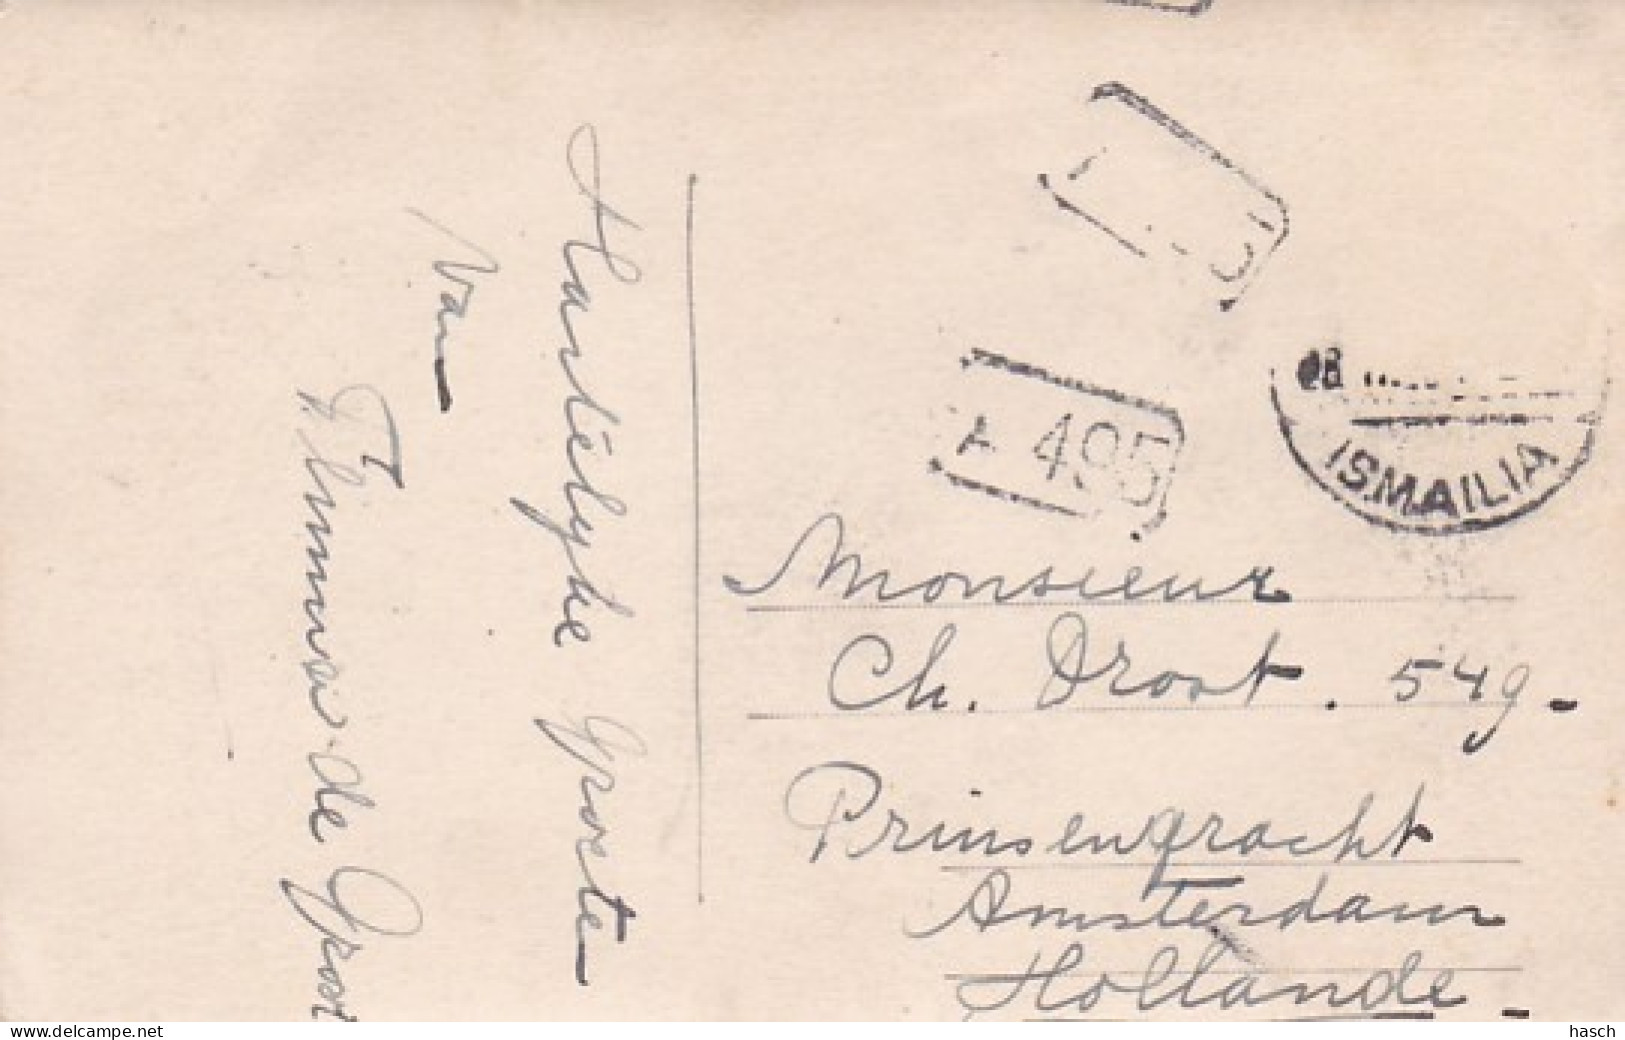 Hartelyke Groete
Van
A 495
ISMAILIA
Monsieur
Ch. Droot. 549.
Prinsengracht
Amsterdam
Hollande.
www.delcampe.net
hasch